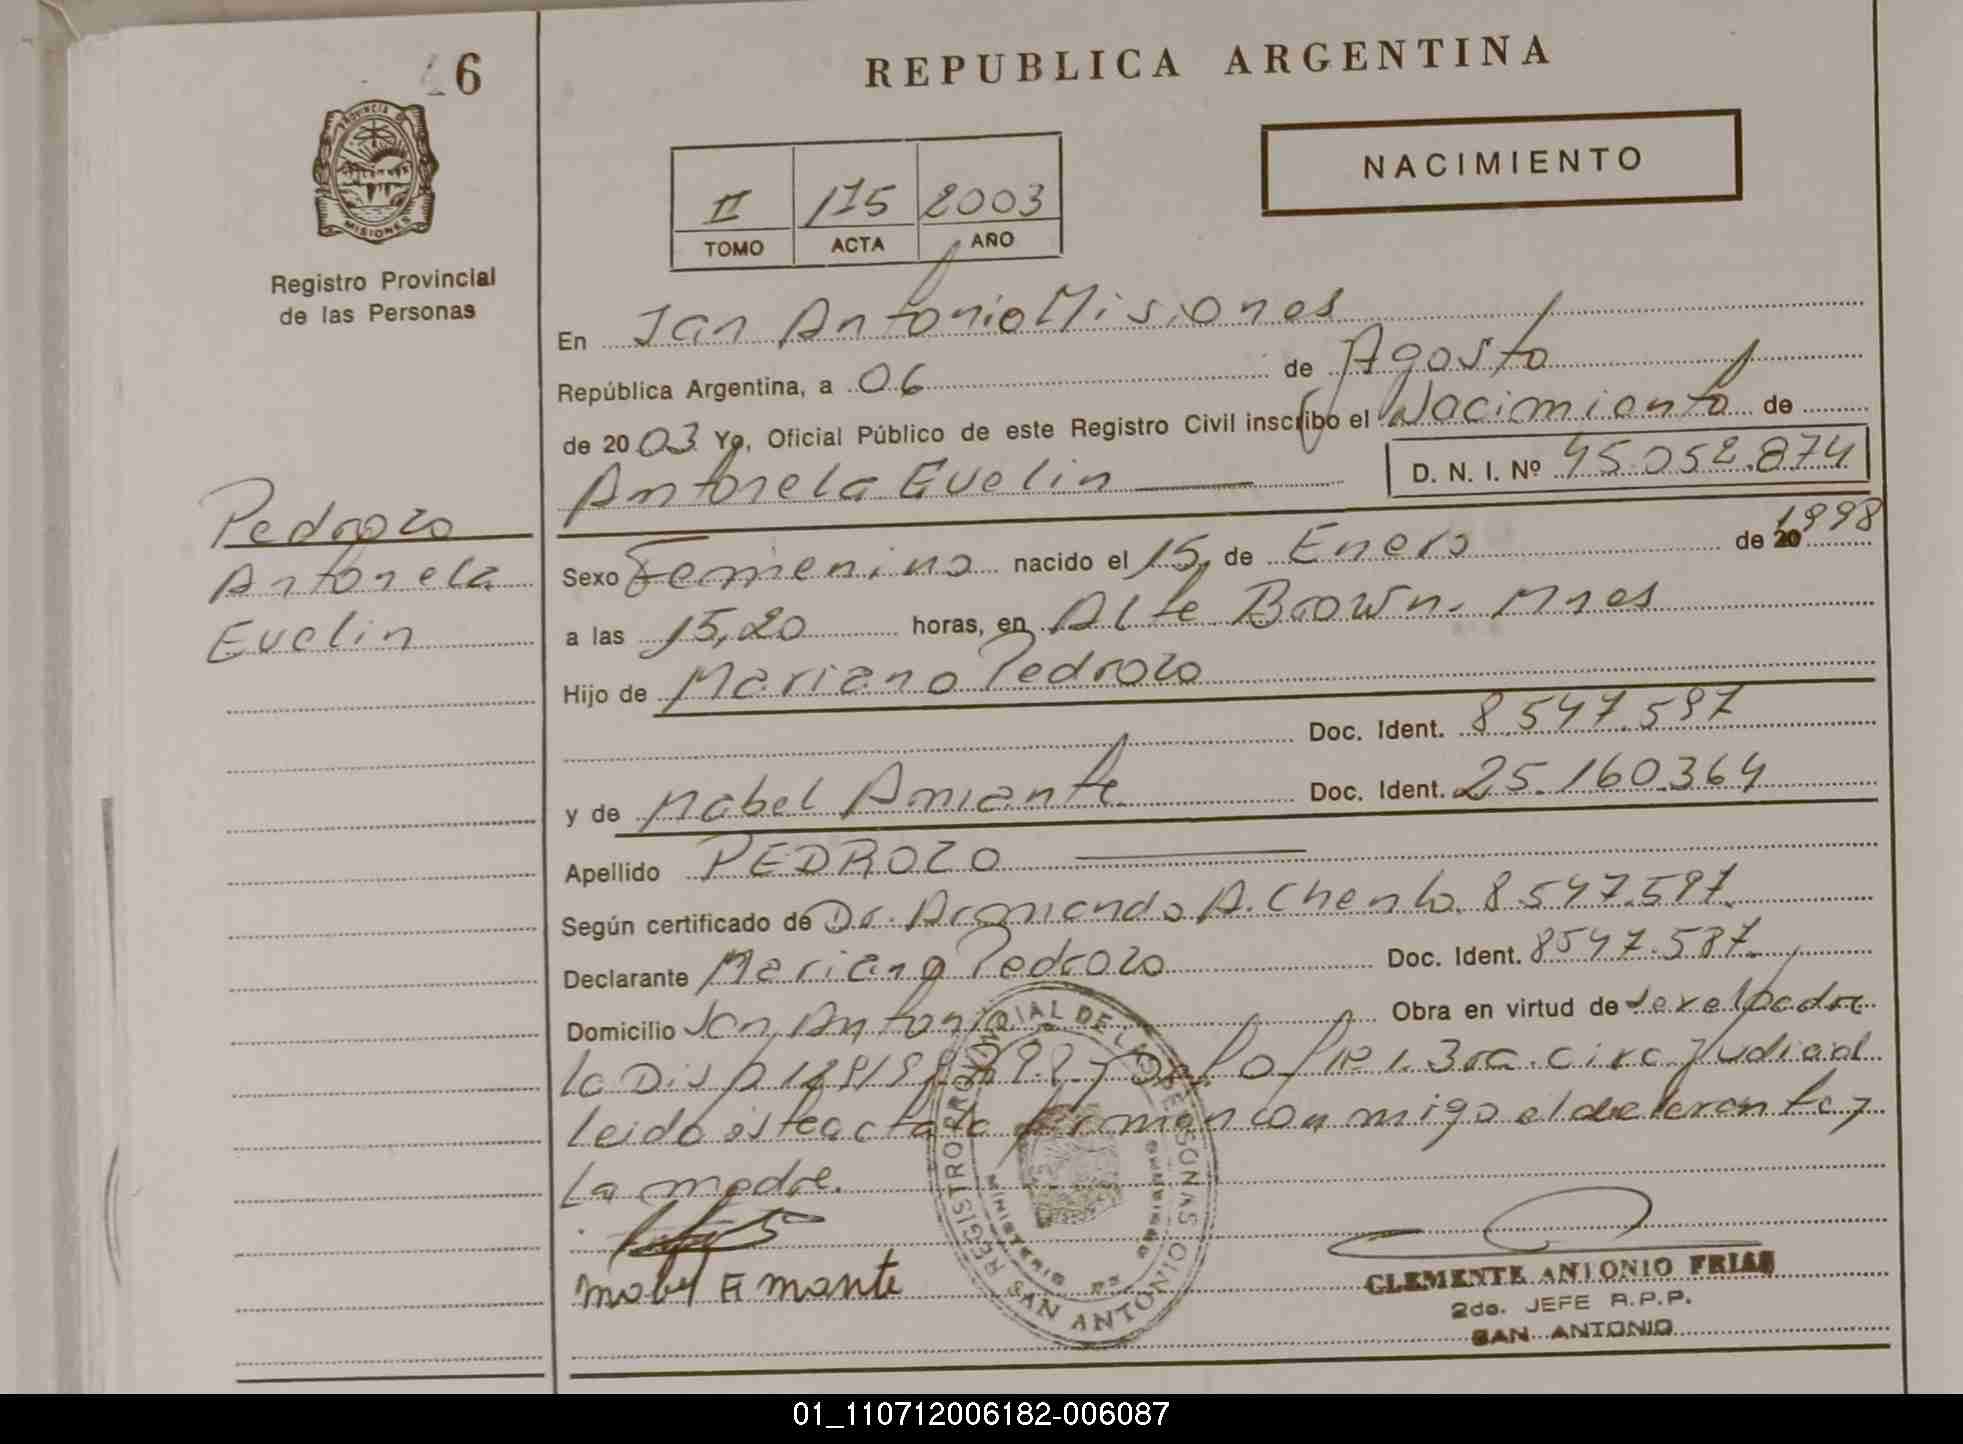 46
REPUBLICA ARGENTINA
NACIMIENTO
PROVINCIA DE
MISIONES
Registro Provincial
de las Personas
II 175 2003
TOMO ACTA AÑO
En San Antonio Misiones
República Argentina, a 06 de Agosto
de 2003 Yo, Oficial Público de este Registro Civil inscribo el Nacimiento de
Antonela Evelin D. N. I. Nº 45.052.874
Pedrozo
Antonela
Evelin
Sexo Femenino nacido el 15 de Enero de 20 1998
a las 15,20 horas, en Alte Brown. Mnes
Hijo de Mariano Pedrozo
Doc. Ident. 8.547.597
y de Mabel Amante Doc. Ident. 25.160.364
Apellido PEDROZO
Según certificado de Dr. Armando A. 8.547.597.
Declarante Mariano Pedrozo Doc. Ident. 8547.587.
Domicilio San Antonio Obra en virtud de
la Disp 1ra. circ. Judicial
leido esta acta la firman conmigo el y
La madre.
Mabel Amante
REGISTRO PROVINCIAL DE LAS PERSONAS
MINISTERIO DE GOBIERNO
SAN ANTONIO
CLEMENTE ANTONIO FRIAS
2do. JEFE R.P.P.
SAN ANTONIO
01_110712006182-006087